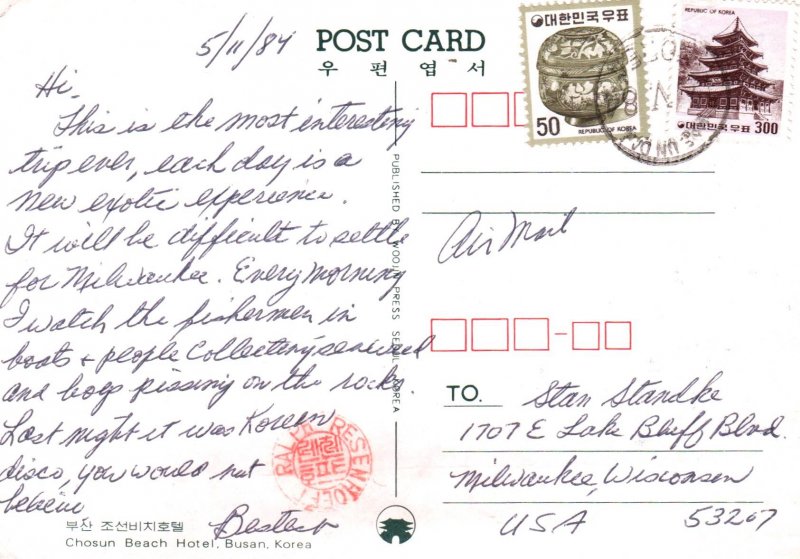 5/11/84
POST CARD
우편엽서
Hi,
This is the most interesting
trip ever, each day is a
new exotic experience.
It will be difficult to settle
for Milwaukee. Every morning
I watch the fishermen in
boats + people collecting seaweed
and boys pissing on the rocks.
Last night it was Korean
disco, you would not
believe
Bestest
부산 조선비치호텔
Chosun Beach Hotel, Busan, Korea
PUBLISHED BY WOOJIN PRESS SEOUL KOREA
RALPH RESENHOEFT
대한민국우표
50
REPUBLIC OF KOREA
REPUBLIC OF KOREA
대한민국우표
300
Air Mail
TO.
Stan Standke
1707 E Lake Bluff Blvd.
Milwaukee, Wisconsin
USA 53207